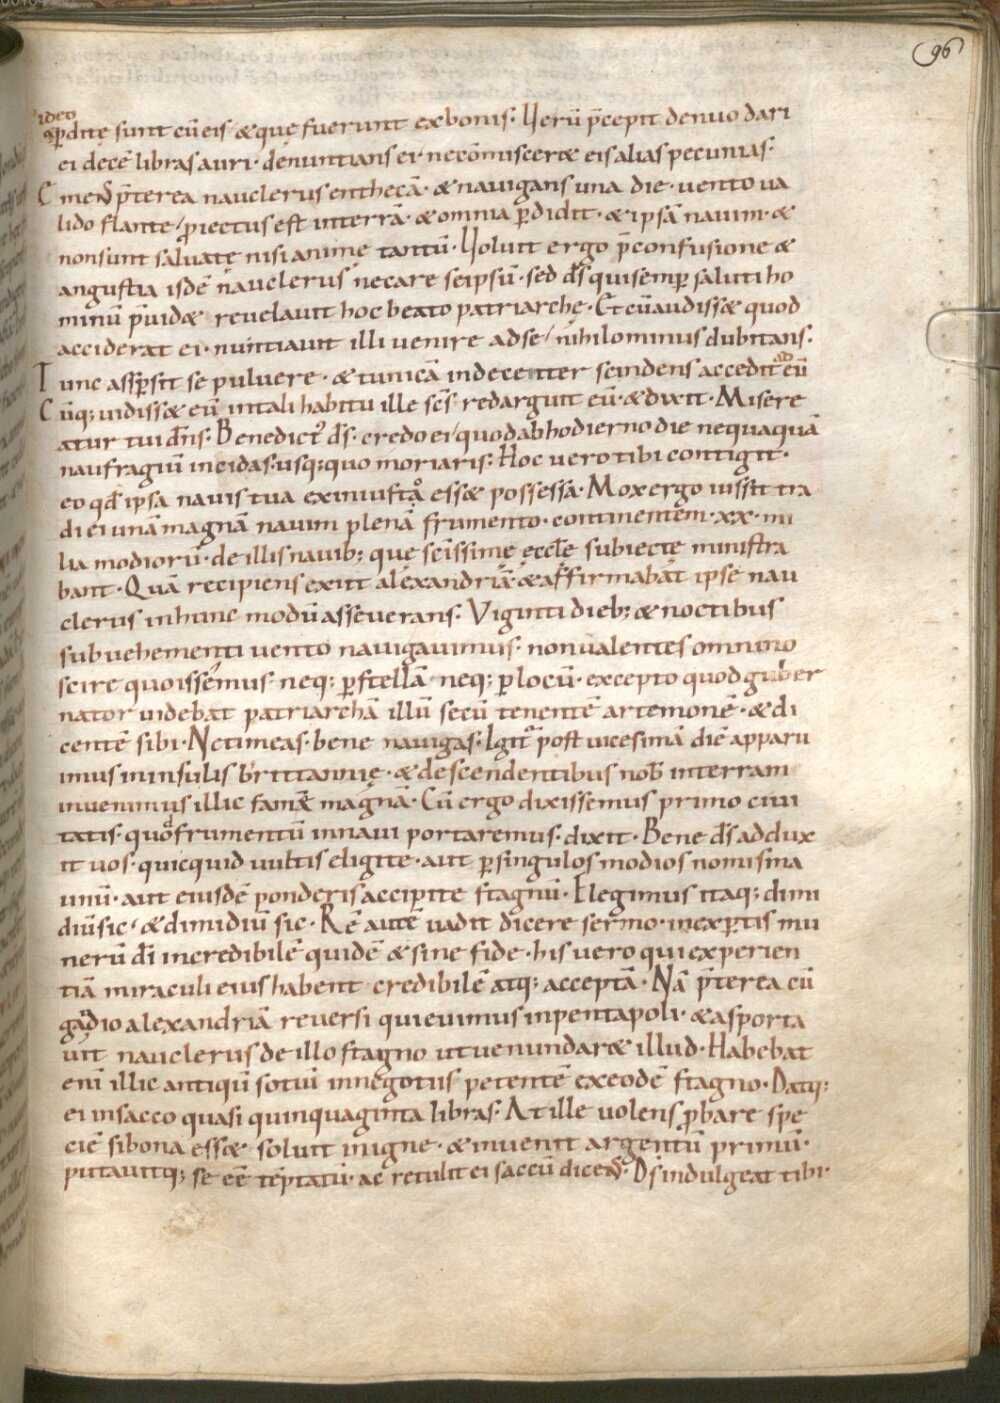 96
ideo
p̄dite sunt cū eis ⁊ que fuerunt ex bonis. Uerū p̄cepit denuo dari
ei decē libras auri. denuntians ei ne cōmisceret eis alias pecunias.
p̄terea nauclerus enthecā. & nauigans una die. uento ua
lido flante, ꝓiectus est in terrā. & omnia p̄didit. & ipsā nauim. &
non sunt saluate nisi anime tantū. Uoluit ergo p̄ confusione &
angustia isdē nauclerus necare seipsū. sed d̄s qui semp̄ saluti ho
minū p̄uidet reuelauit hoc beato patriarchę. Et cū audisset quod
acciderat ei. nuntiauit illi uenire ad se, nihilominus dubitans.
Tunc asp̄sit se puluere. & tunicā indecenter scindens accedit ad eū
Cūq; uidisset eū in tali habitu ille sc̄s redarguit eū. & dixit. Misere
atur tui dn̄s. Benedict᷒ d̄s. credo ei, quod ab hodierno die nequaquā
naufragiū incidas. usq; quo moriaris. Hoc uero tibi contigit.
eo qđ ipsa nauis tua ex iniusto esset possessa. Mox ergo iussit tra
di ei unā magnā nauim plenā frumento. continentem. xx. mi
lia modiorū. de illis nauib; quę sc̄issimę ęccłe subiectę ministra
bant. Quā recipiens exiit alexandriā. & affirmabat ipse nau
clerus in hunc modū asseuerans. Viginti dieb; & noctibus
sub uehementi uento nauigauimus. non ualentes omnino
scire quo issemus neq; p̄ stellā neq; p̄ locū. excepto quod guber
nator uidebat patriarchā illū secū tenentē artemonē. & di
centē sibi. Ne timeas. bene nauigas. Igit᷒ post uicesimā diē apparu
imus in insulis brittannię. & descendentibus nob̄ in terram
inuenimus illic famē magnā. Cū ergo dixissemus primo ciui
tatis. quod frumentū in naui portaremus. dixit. Bene d̄s addux
it uos. quicquid uultis eligite. aut p̄ singulos modios nomisma
unū. aut eiusdē ponderis accipite stagnū. Elegimus itaq; dimi
diū sic, & dimidiū sic. Rē autē uadit dicere sermo. inexp̄tis mu
nerū dī incredibilē quidē & sine fide. his uero qui experien
tiā miraculi eius habent credibilē atq; acceptā. Nā p̄terea cū
gaudio alexandriā reuersi quieuimus in pentapoli. & asporta
uit nauclerus de illo stagno ut uenundaret illud. Habebat
enī illic antiqū sotiū in negotiis petentē ex eodē stagno. Datq:
ei in sacco quasi quinquaginta libras. At ille uolens ꝓbare spe
ciē si bona esset soluit in igne. & inuenit argentū primū.
putauitq; se eē tēptatū. ac retulit ei saccū dicens. D̄s indulgeat tibi.